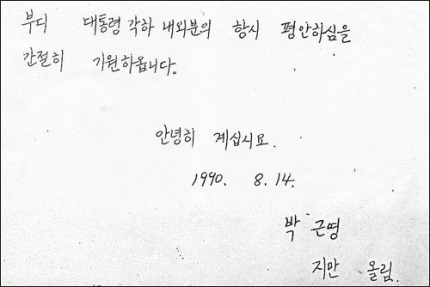 부디 대통령 각하 내외분의 항시 평안하심을
간절히 기원하옵니다.
안녕히 계십시요.
1990. 8. 14.
박 근영
지만 올림.